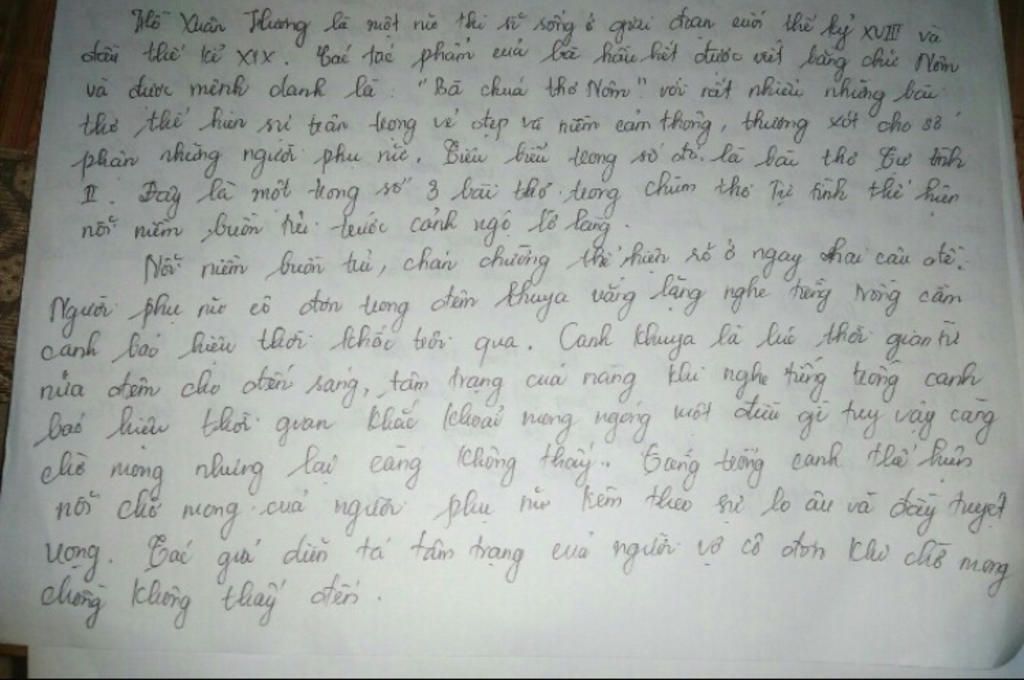 Hồ Xuân Hương là một nữ thi sĩ sống ở giai đoạn cuối thế kỷ XVIII và
đầu thế kỉ XIX. Các tác phẩm của bà hầu hết được viết bằng chữ Nôm
và được mệnh danh là "Bà chúa thơ Nôm" với rất nhiều những bài
thơ thể hiện sự trân trọng vẻ đẹp và niềm cảm thông, thương xót cho số
phận những người phụ nữ. Tiêu biểu trong số đó là bài thơ Tự tình
II. Đây là một trong số 3 bài thơ trong chùm thơ Tự tình thể hiện
nỗi niềm buồn tủi trước cảnh ngộ lỡ làng.
Nỗi niềm buồn tủi, chán chường thể hiện rõ ở ngay hai câu đề.
Người phụ nữ cô đơn trong đêm khuya vắng lặng nghe tiếng trống cầm
canh báo hiệu thời khắc trôi qua. Canh khuya là lúc thời gian từ
nửa đêm cho đến sáng, tâm trạng của nàng khi nghe tiếng trống canh
báo hiệu thời gian khắc khoải mong ngóng một điều gì tuy vậy càng
chờ mong nhưng lại càng không thấy.. Tiếng trống canh thể hiện
nỗi chờ mong của người phụ nữ kèm theo sự lo âu và đầy tuyệt
vọng. Tác giả diễn tả tâm trạng của người vợ cô đơn khi chờ mong
chồng không thấy đến.